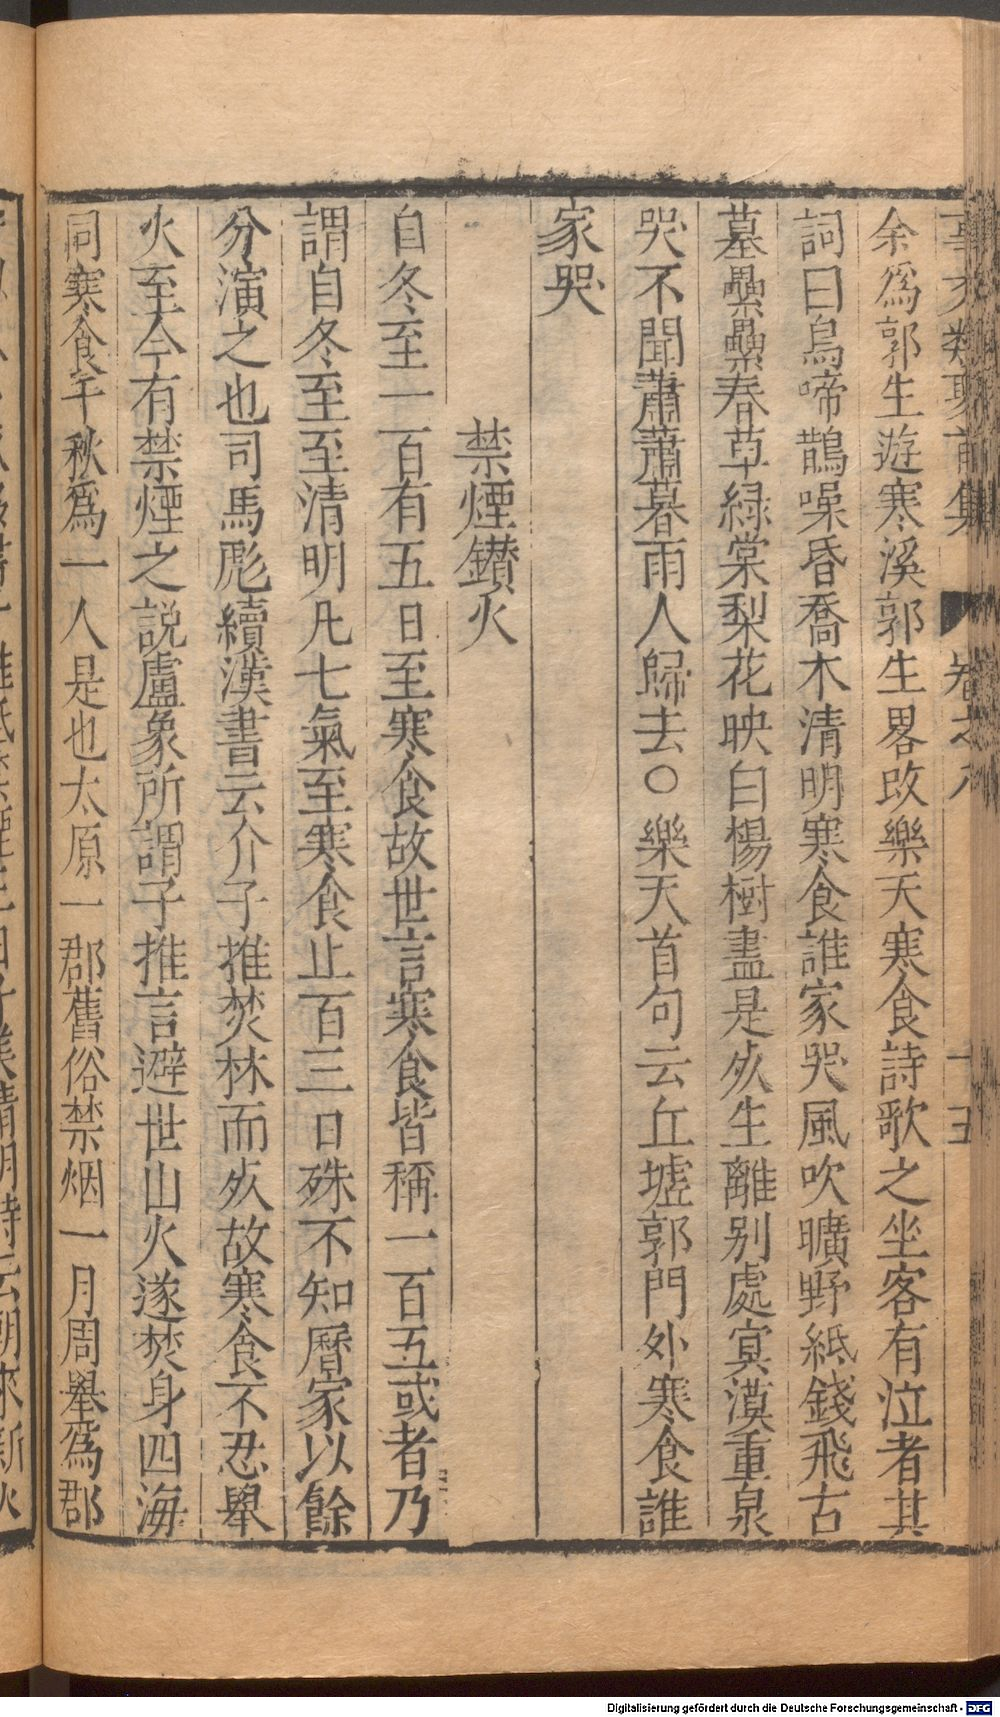 事文類聚前集 卷之八 十五
余爲郭生遊寒溪郭生畧改樂天寒食詩歌之坐客有泣者其
詞曰烏啼鵲噪昏喬木清明寒食誰家哭風吹曠野紙錢飛古
墓纍纍春草緑棠梨花映白楊樹盡是死生離别處㝠漠重泉
哭不聞蕭蕭暮雨人歸去○樂天首句云丘墟郭門外寒食誰
家哭
禁煙鑚火
自冬至一百有五日至寒食故世言寒食皆稱一百五或者乃
謂自冬至至清明凡七氣至寒食止百三日殊不知曆家以餘
分演之也司馬彪續漢書云介子推焚林而死故寒食不忍舉
火至今有禁煙之説盧象所謂子推言避世山火遂焚身四海
同寒食千秋爲一人是也太原一郡舊俗禁烟一月周舉爲郡
Digitalisierung gefördert durch die Deutsche Forschungsgemeinschaft - DFG